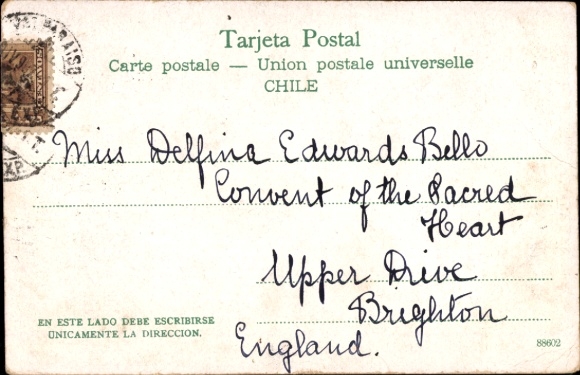 Tarjeta Postal
Carte postale — Union postale universelle
CHILE
VALPARAISO
CENTAVOS
Miss Delfina Edwards Bello
Convent of the Sacred
Heart
Upper Drive
Brighton
England.
EN ESTE LADO DEBE ESCRIBIRSE
ÚNICAMENTE LA DIRECCION.
88602